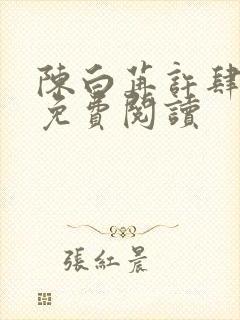 陳白苒許肆
免費閱讀
張紅晨